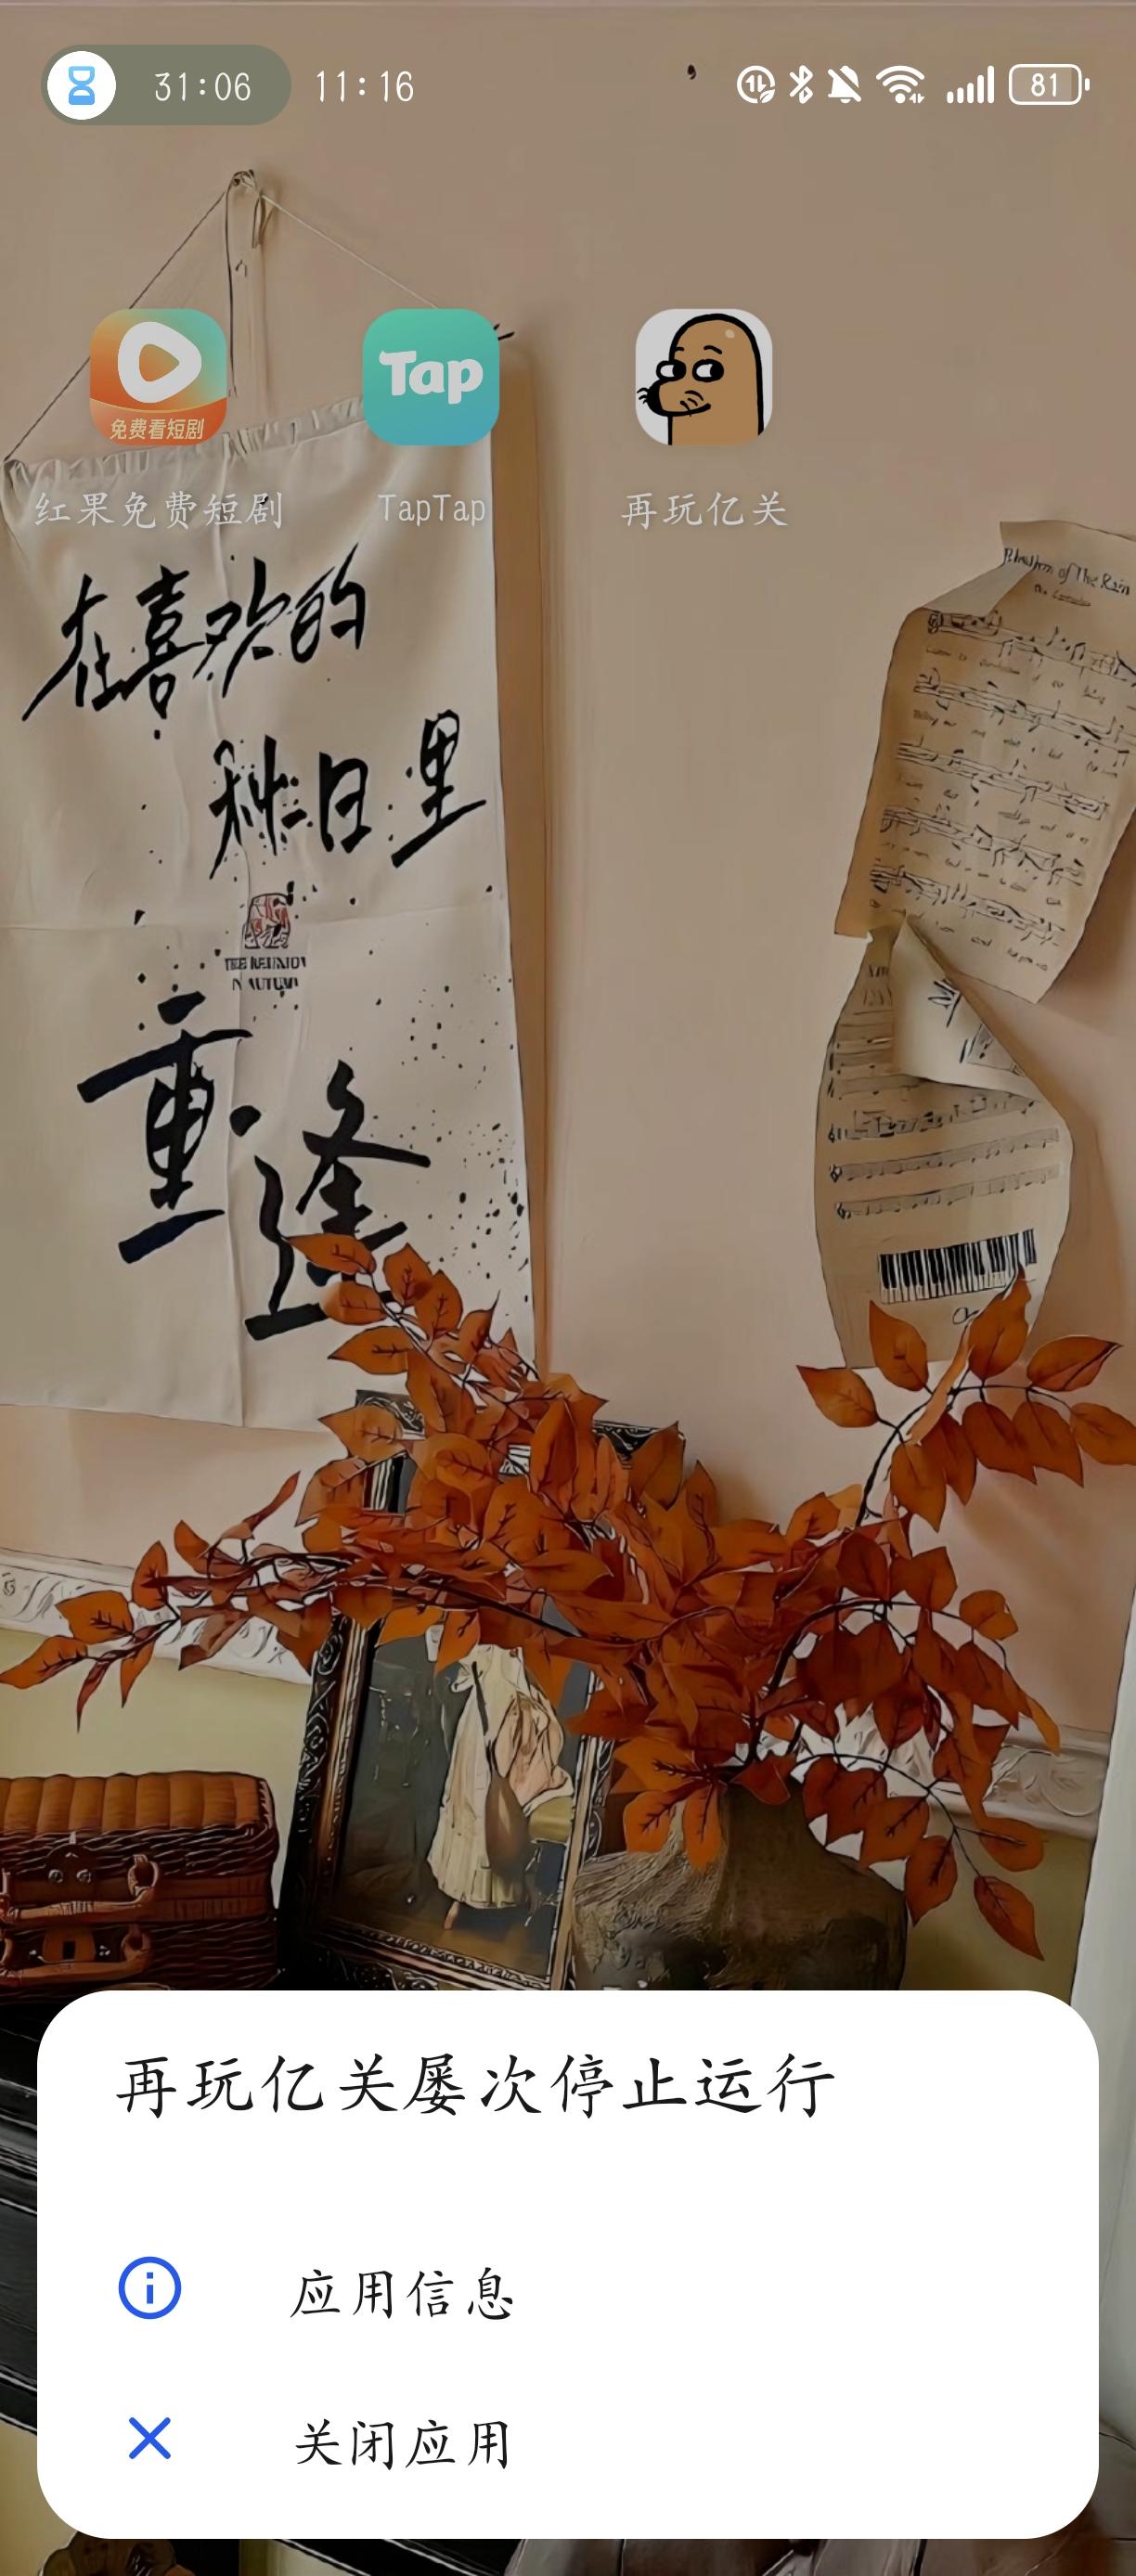 31:06 11:16 81
免费看短剧
Tap
红果免费短剧 TapTap 再玩亿关
Rhythm of The Rain
在喜欢的
秋日里
THE REUNION
IN AUTUMN
重逢
再玩亿关屡次停止运行
应用信息
关闭应用